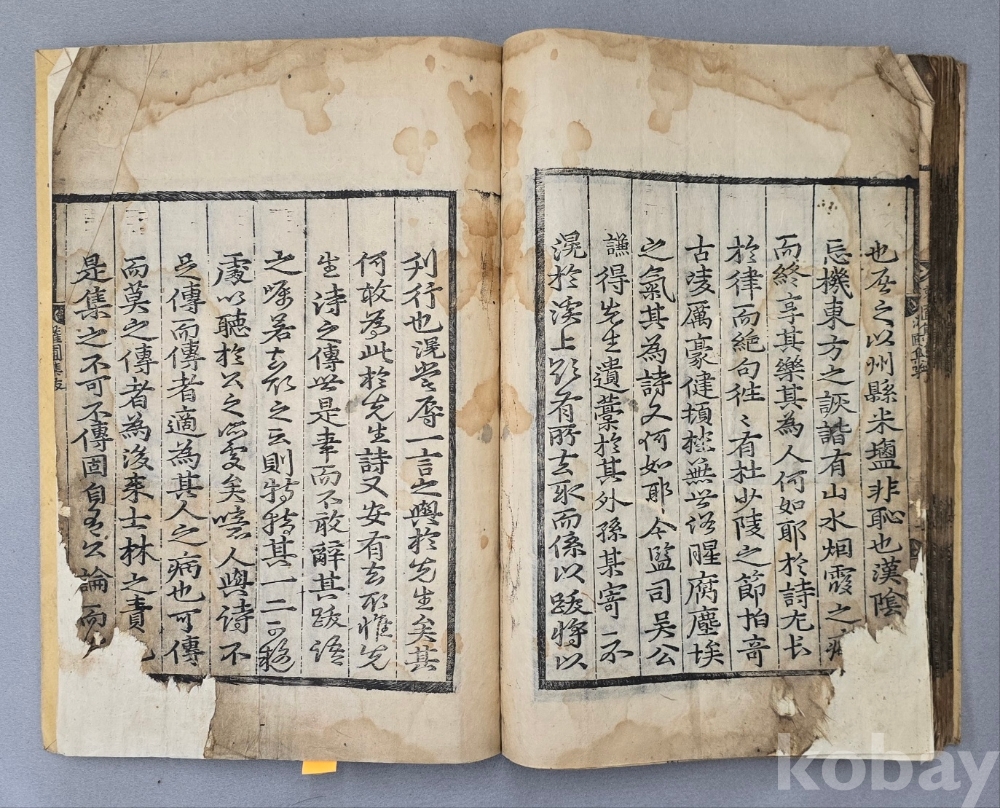 也吾之以州縣米鹽非恥也漢陰
忘機東方之詼諧有山水烟霞之
而終享其樂其為人何如耶於詩尤長
於律而絕句往〻有杜少陵之節拍奇
古凌厲豪健頓挫無世俗腥腐塵埃
之氣其為詩又何如耶今監司吳公
謙得先生遺藁於其外孫某寄示
滉於溪上欲有所去取而係以跋將以
刋行也滉嘗辱一言之與於先生矣其
何敢為此於先生詩又安有去取惟先
生詩之傳世是幸而不敢辭其跋語
之囑若去取之云則特標其一二可移
處以聽於公之處矣噫人與詩不
足傳而傳者適為其人之病也可傳
而莫之傳者為後來士林之責
是集之不可不傳固自有公論而
kobay